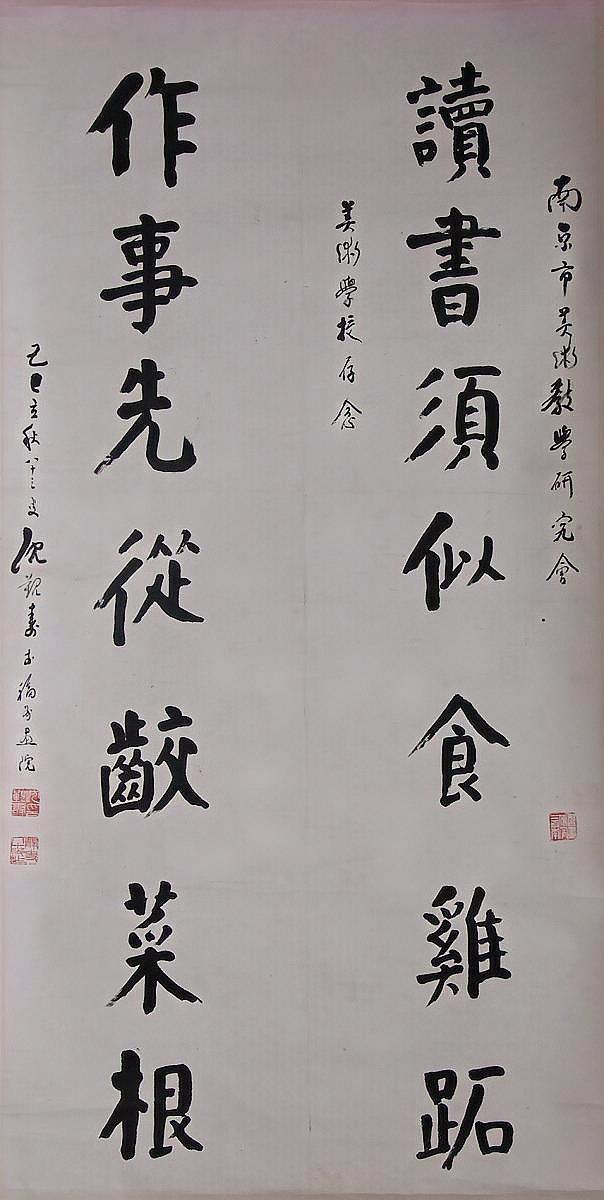 南京市美術教學研究會
讀書須似食雞跖
美術學校存念
作事先從齩菜根
己巳立秋八十三叟沈觀壽書福州畫院